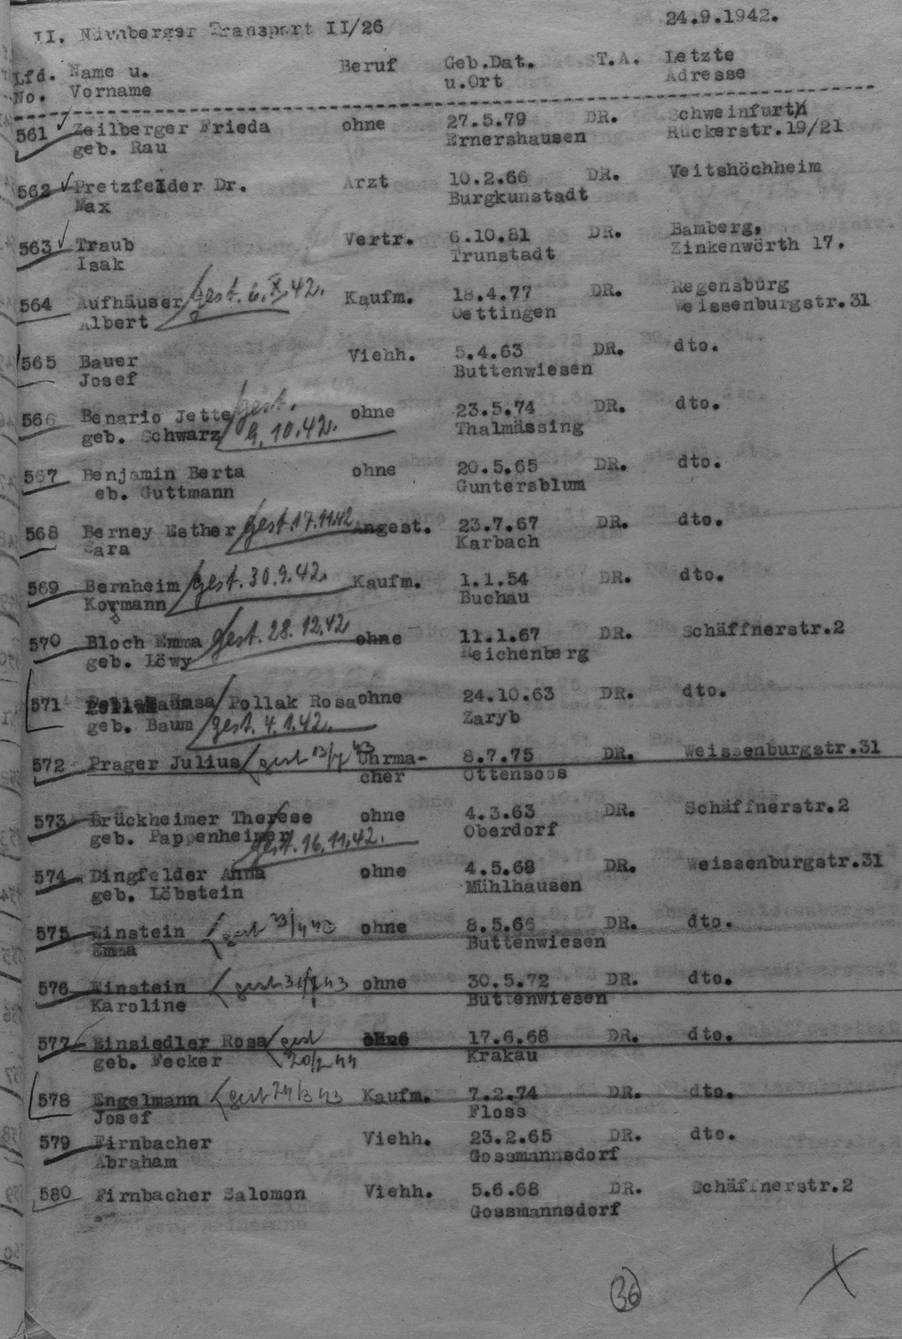 II. Nürnberger Transport II/26 24.9.1942.
Lfd. Name u. Beruf Geb.Dat. ST.A. Letzte
No. Vorname u.Ort Adresse
561 Zeilberger Frieda ohne 27.5.79 DR. Schweinfurth
geb. Rau Ernershausen Rückerstr.19/21
562 Pretzfelder Dr. Arzt 10.2.66 DR. Veitshöchheim
Max Burgkunstadt
563 Traub Vertr. 6.10.81 DR. Bamberg,
Isak Trunstadt Zinkenwörth 17.
564 Aufhäuser gest. 6.X.42. Kaufm. 18.4.77 DR. Regensburg
Albert Oettingen Weissenburgstr.31
565 Bauer Viehh. 5.4.63 DR. dto.
Josef Buttenwiesen
566 Benario Jette gest. ohne 23.5.74 DR. dto.
geb. Schwarz 9.10.42. Thalmässing
567 Benjamin Berta ohne 20.5.65 DR. dto.
eb. Guttmann Guntersblum
568 Berney Esther gest.17.11.42. Angest. 23.7.67 DR. dto.
Sara Karbach
569 Bernheim gest. 30.9.42. Kaufm. 1.1.54 DR. dto.
Koymann Buchau
570 Bloch Emma gest. 28.12.42 ohne 11.1.67 DR. Schäffnerstr.2
geb. Löwy Reichenberg
571 Pollak Rosa ohne 24.10.63 DR. dto.
geb. Baum gest. 4.1.42. Zaryb
572 Prager Julius gest Uhrma- 8.7.75 DR. Weissenburgstr.31
cher Ottensoos
573 Brückheimer Therese ohne 4.3.63 DR. Schäffnerstr.2
geb. Pappenheimer Oberdorf
gest. 16.11.42.
574 Dingfelder Anna ohne 4.5.68 DR. Weissenburgstr.31
geb. Löbstein Mühlhausen
575 Einstein gest ohne 8.5.66 DR. dto.
Emma Buttenwiesen
576 Einstein gest ohne 30.5.72 DR. dto.
Karoline Buttenwiesen
577 Einsiedler Rosa gest ohne 17.6.68 DR. dto.
geb. Fecker 20/2 44 Krakau
578 Engelmann gest 24/3 43 Kaufm. 7.2.74 DR. dto.
Josef Floss
579 Firnbacher Viehh. 23.2.65 DR. dto.
Abraham Gossmannsdorf
580 Firnbacher Salomon Viehh. 5.6.68 DR. Schäffnerstr.2
Gossmannsdorf
36